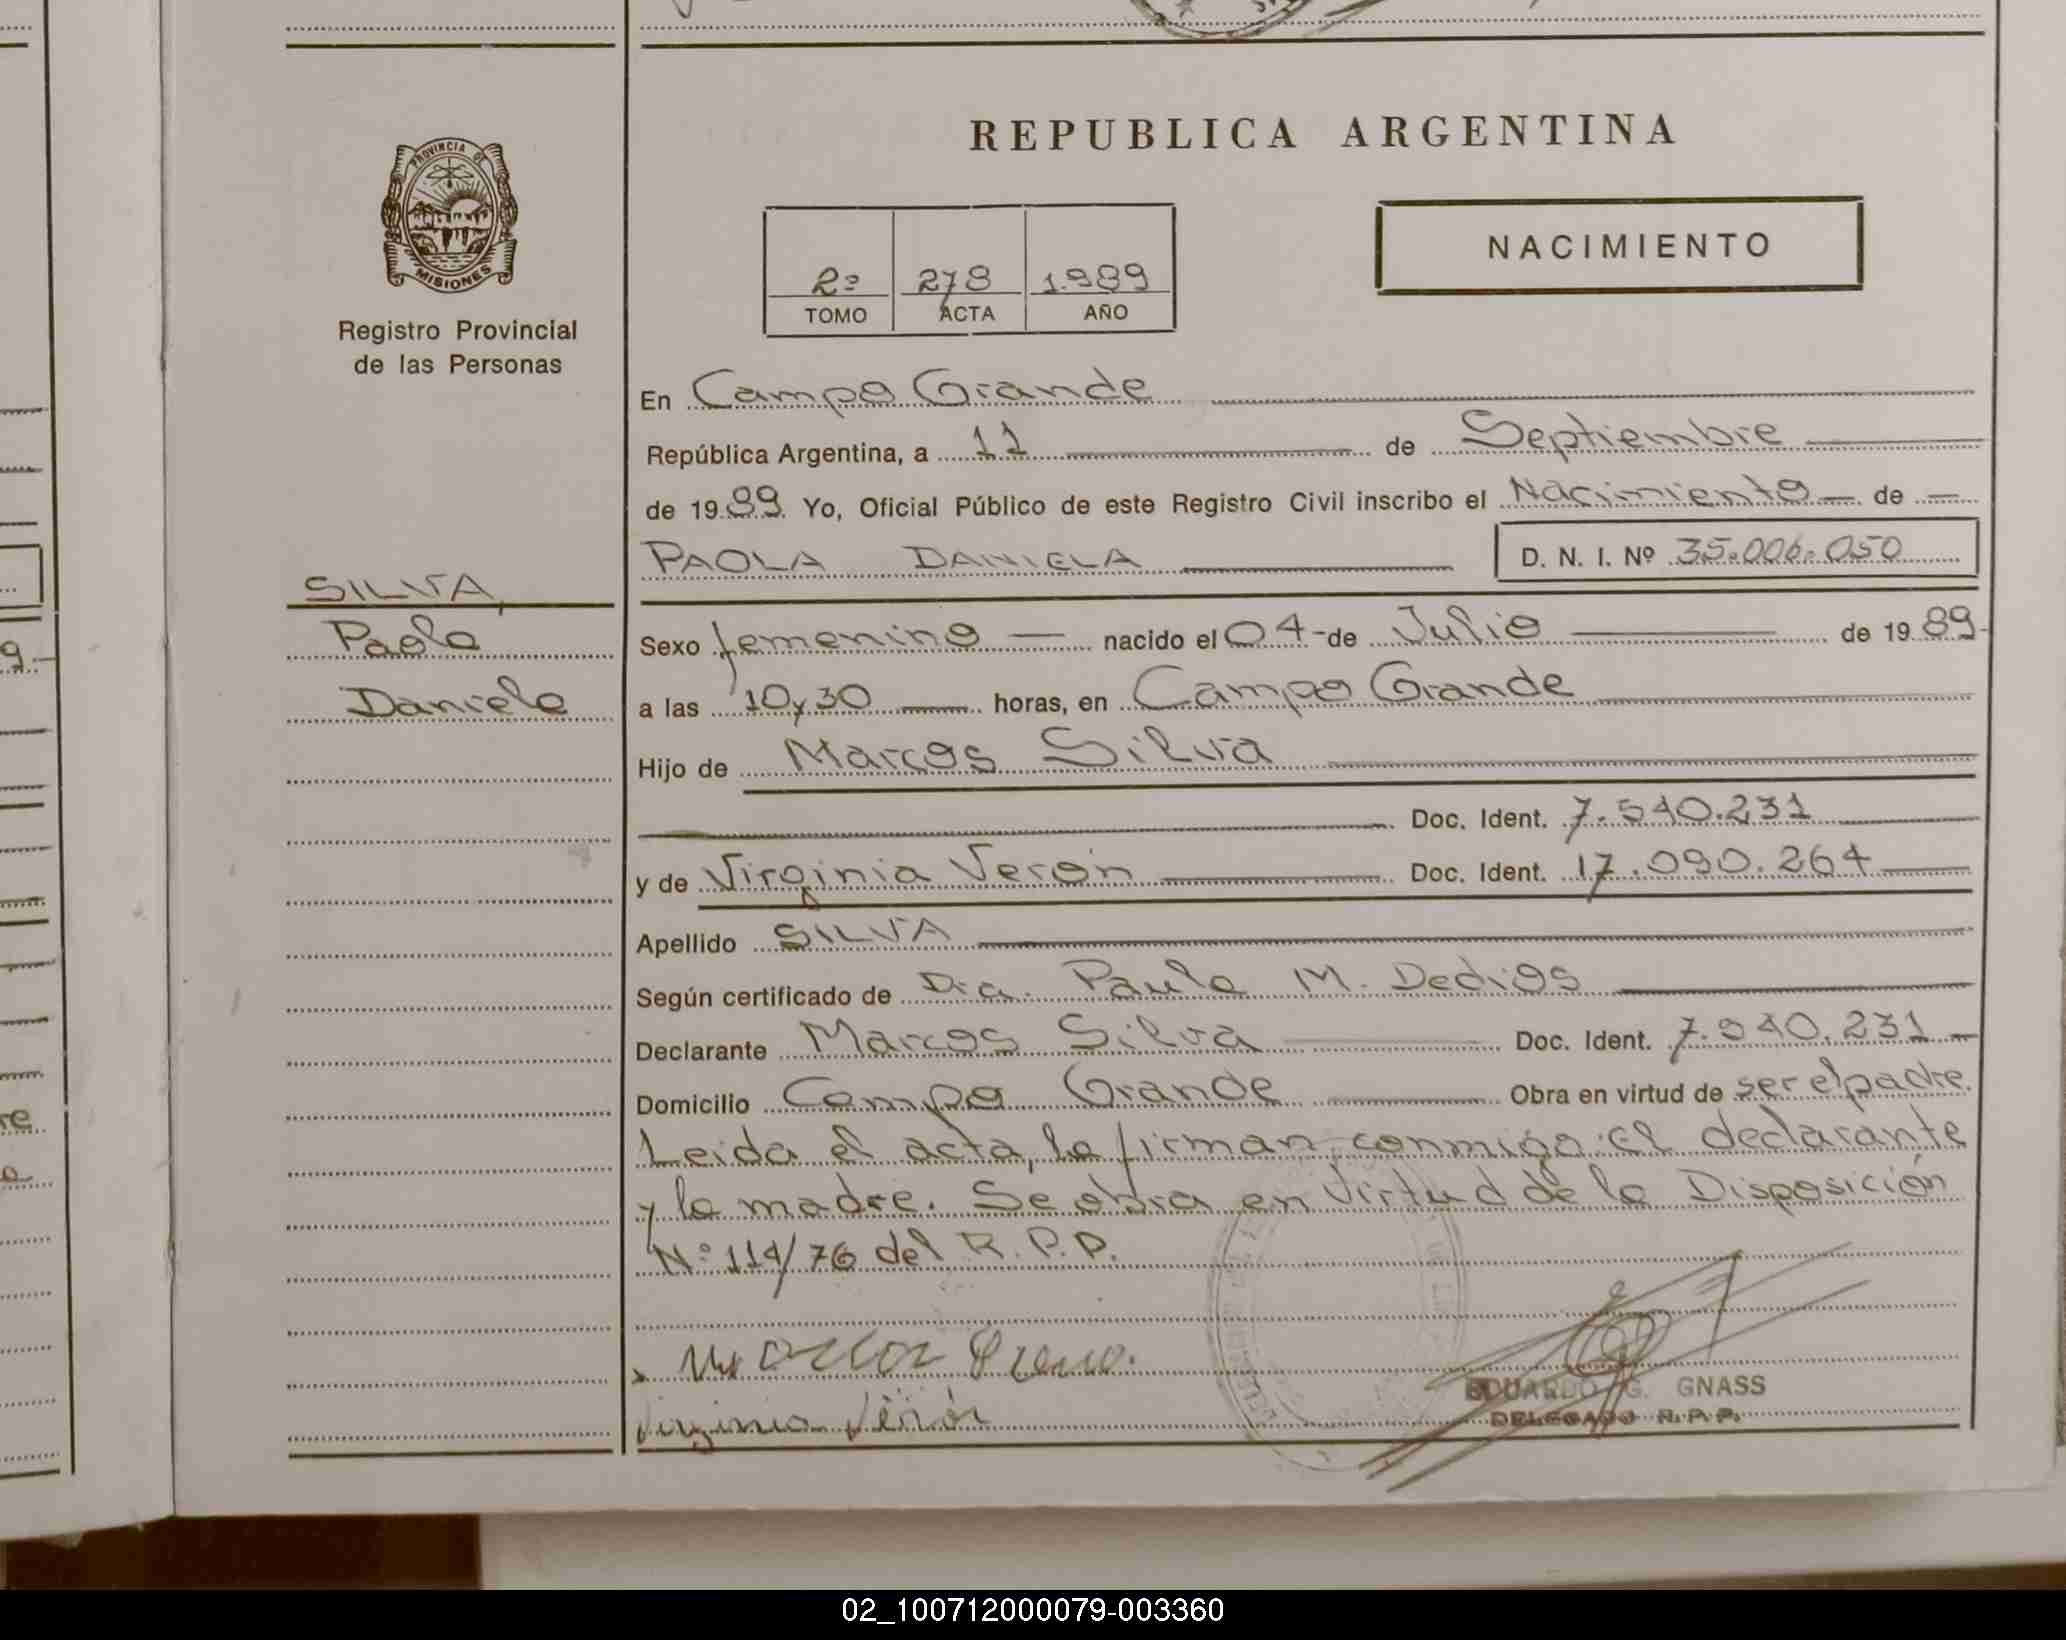 REPUBLICA ARGENTINA
PROVINCIA DE
MISIONES
Registro Provincial
de las Personas
NACIMIENTO
2º 278 1.989
TOMO ACTA AÑO
En Campo Grande
República Argentina, a 11 de Septiembre
de 1989. Yo, Oficial Público de este Registro Civil inscribo el Nacimiento de
PAOLA DANIELA D. N. I. Nº 35.006.050
SILVA,
Paola
Daniela
Sexo femenino nacido el 04 de Julio de 1989
a las 10y30 horas, en Campo Grande
Hijo de Marcos Silva
Doc. Ident. 7.540.231
y de Virginia Verón Doc. Ident. 17.090.264
Apellido SILVA
Según certificado de Dra. Paula M. Dedios
Declarante Marcos Silva Doc. Ident. 7.540.231
Domicilio Campo Grande Obra en virtud de ser el padre.
Leida el acta, la firman conmigo el declarante
y la madre. Se obra en virtud de la Disposición
Nº 114/76 del R.P.P.
Virginia Verón
EDUARDO G. GNASS
DELEGADO R.P.P.
02_100712000079-003360